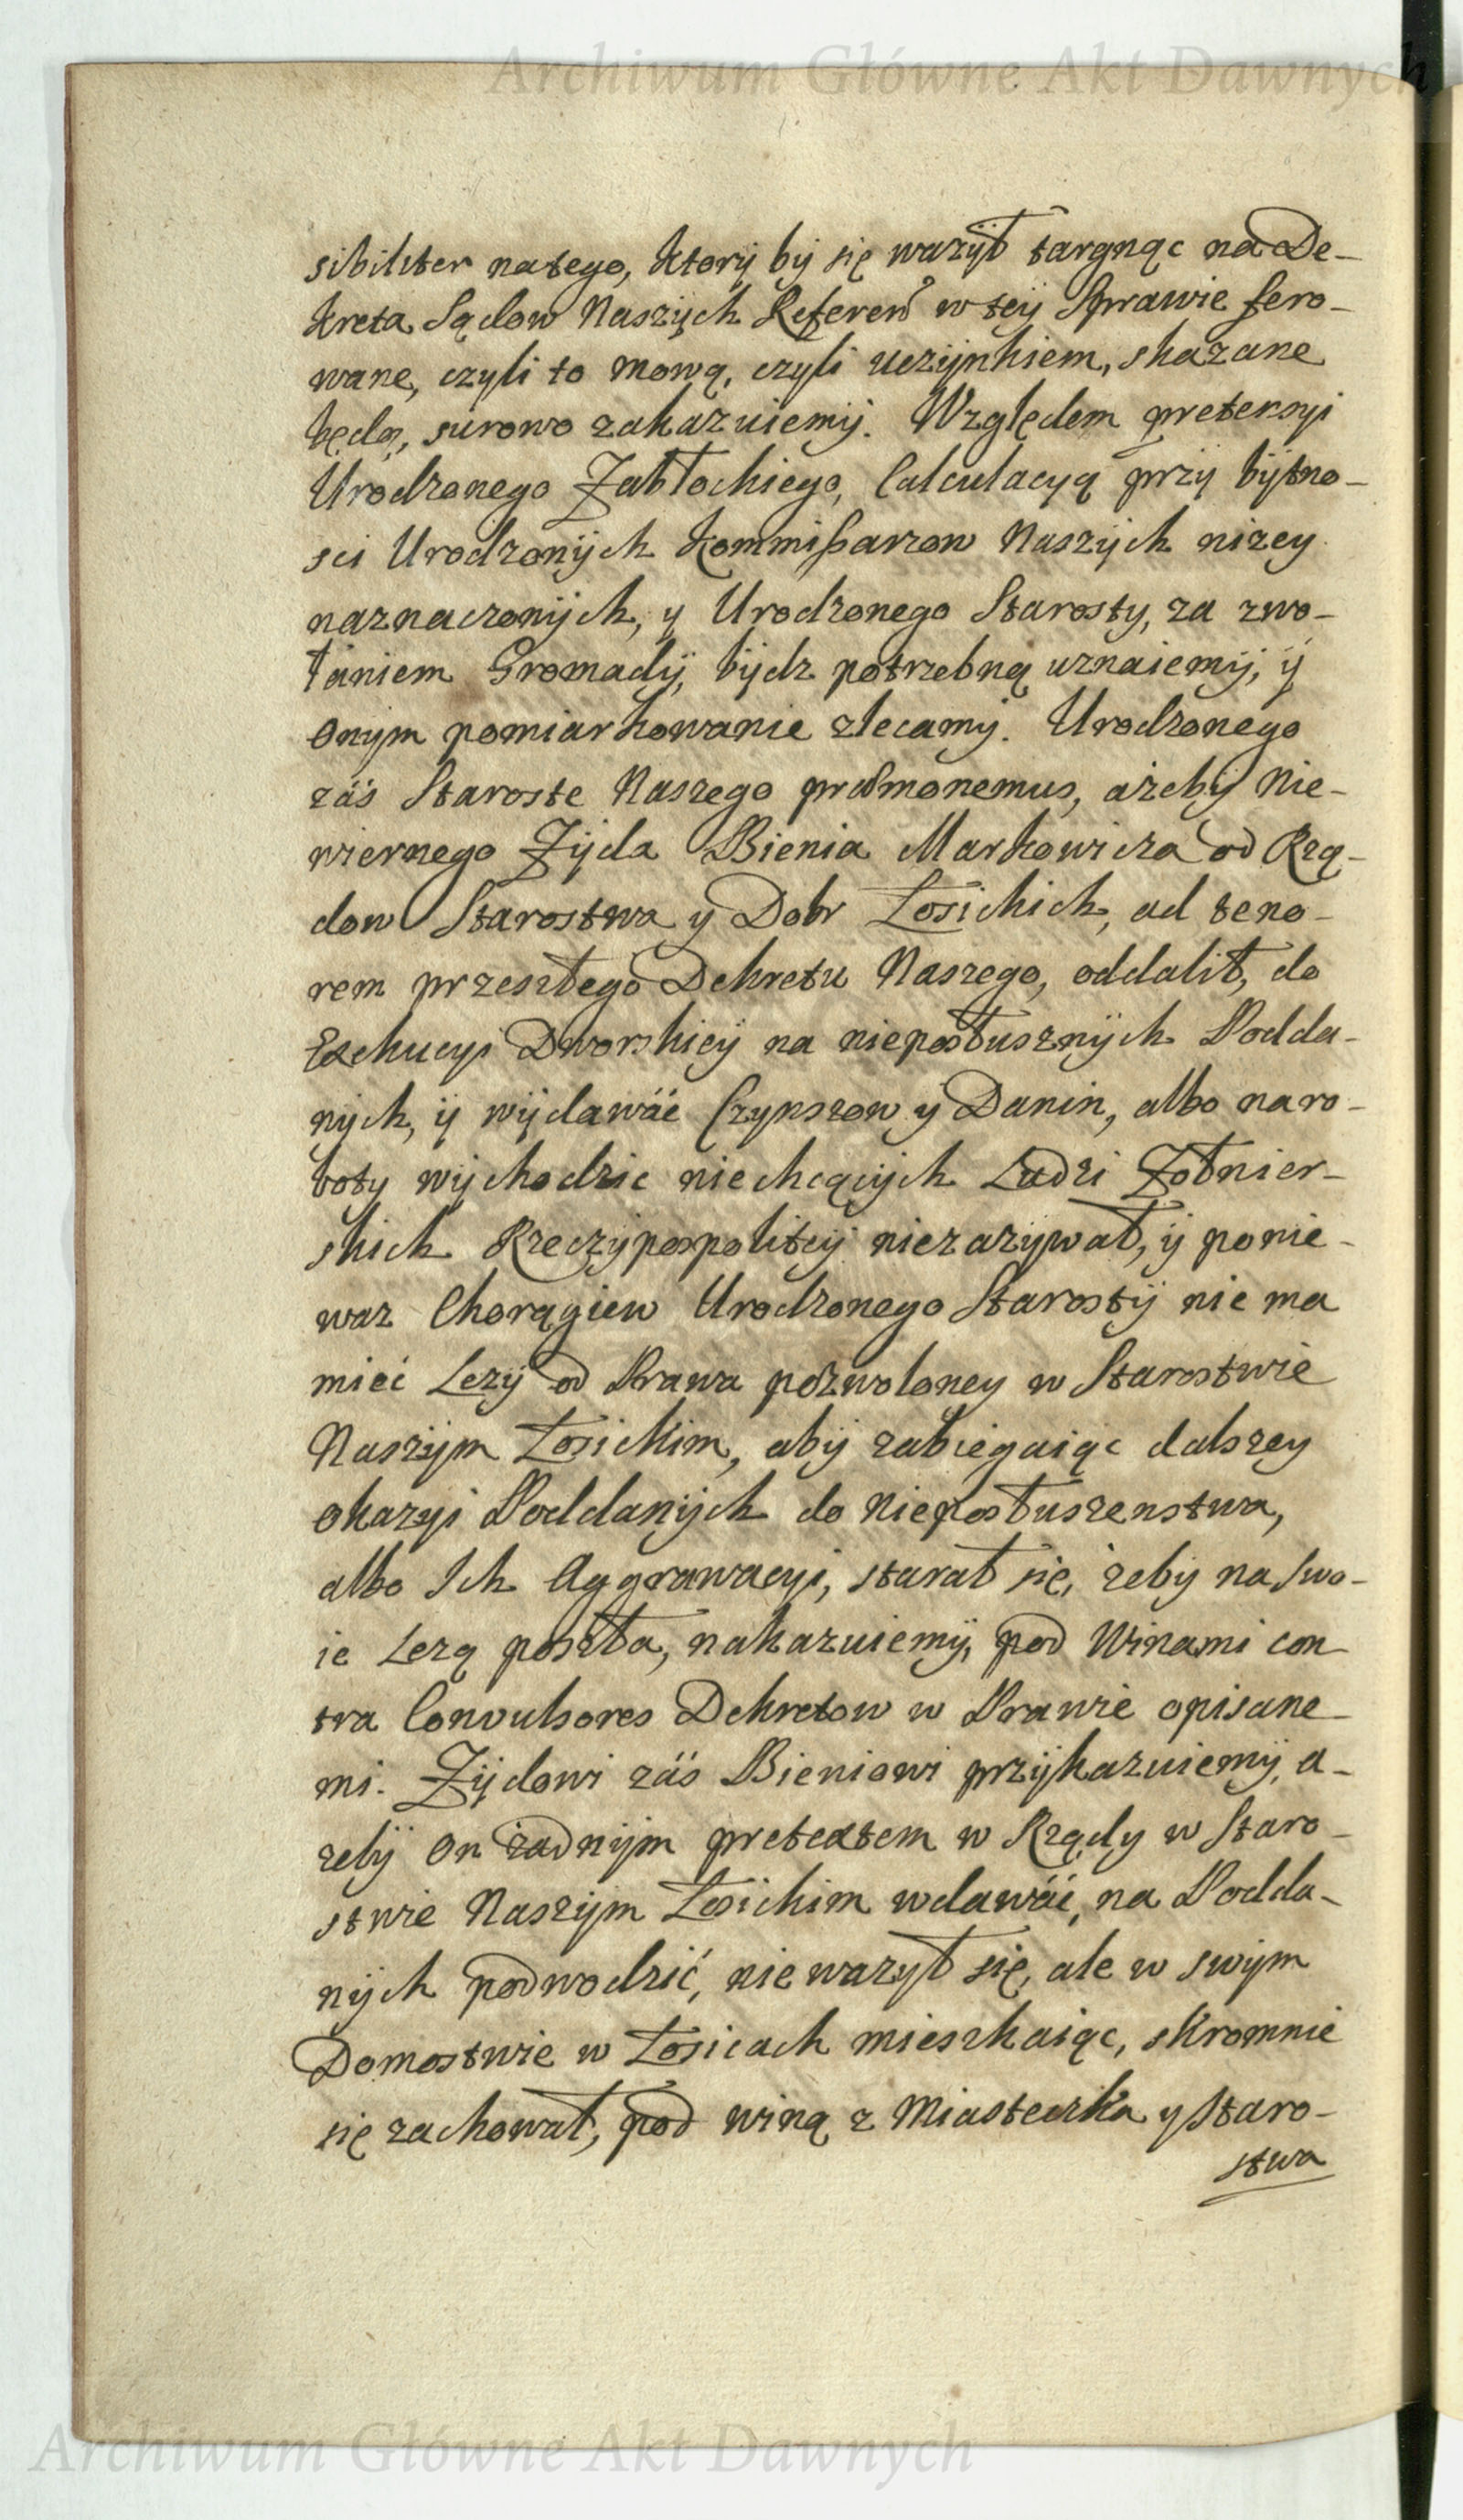 Archiwum Główne Akt Dawnych
sibiliter natego, ktory by się ważył targnąc na De-
kreta Sądow Naszych Referen w tey Sprawie fero-
wane, czyli to mową, czyli uczynkiem, skazane
będą, surowo zakazuiemy. Względem pretensyi
Urodzonego Zabłockiego, Calculacyą przy bytno-
sci Urodzonych Kommissarzow Naszych nizey
naznaczonych, y Urodzonego Starosty, za zwo-
łaniem Gromady, bydz potrzebną uznaiemy, y
onym pomiarkowanie zlecamy. Urodzonego
zaś Staroste Naszego præmonemus, ażeby Nie-
wiernego Zyda Bienia Markowicza od Rzą-
dow Starostwa y Dobr Łosickich, ad teno-
rem przeszłego Dekretu Naszego, oddalił, do
Exekucyi Dworskiey na nieposłusznych Podda-
nych, y wydawać Czynszow y Danin, albo na ro-
boty wychodzic niechcących Ludzi Żołnier-
skich Rzeczypospolitey niezazywał, y ponie-
waz Chorągiew Urodzonego Starosty nie ma
mieć Lezy od Prawa pozwoloney w Starostwie
Naszym Łosickim, aby zabiegaiąc dalszey
okazyi Poddanych do Nieposłuszenstwa,
albo Ich Aggrawacyi, starał się, żeby na swo-
ie Lezą poszła, nakazuiemy, pod Winami con
tra Convulsores Dekretow w Prawie opisane-
mi. Zydowi zaś Bieniowi przykazuiemy, a-
zeby on żadnym pretextem w Rządy w Staro-
stwie Naszym Łosickim wdawáć, na Podda-
nych podwodzić, nie ważył się, ale w swym
Domostwie w Łosicach mieszkaiąc, skromnie
się zachował, pod winą z Miasteczka y Staro-
stwa
Archiwum Główne Akt Dawnych